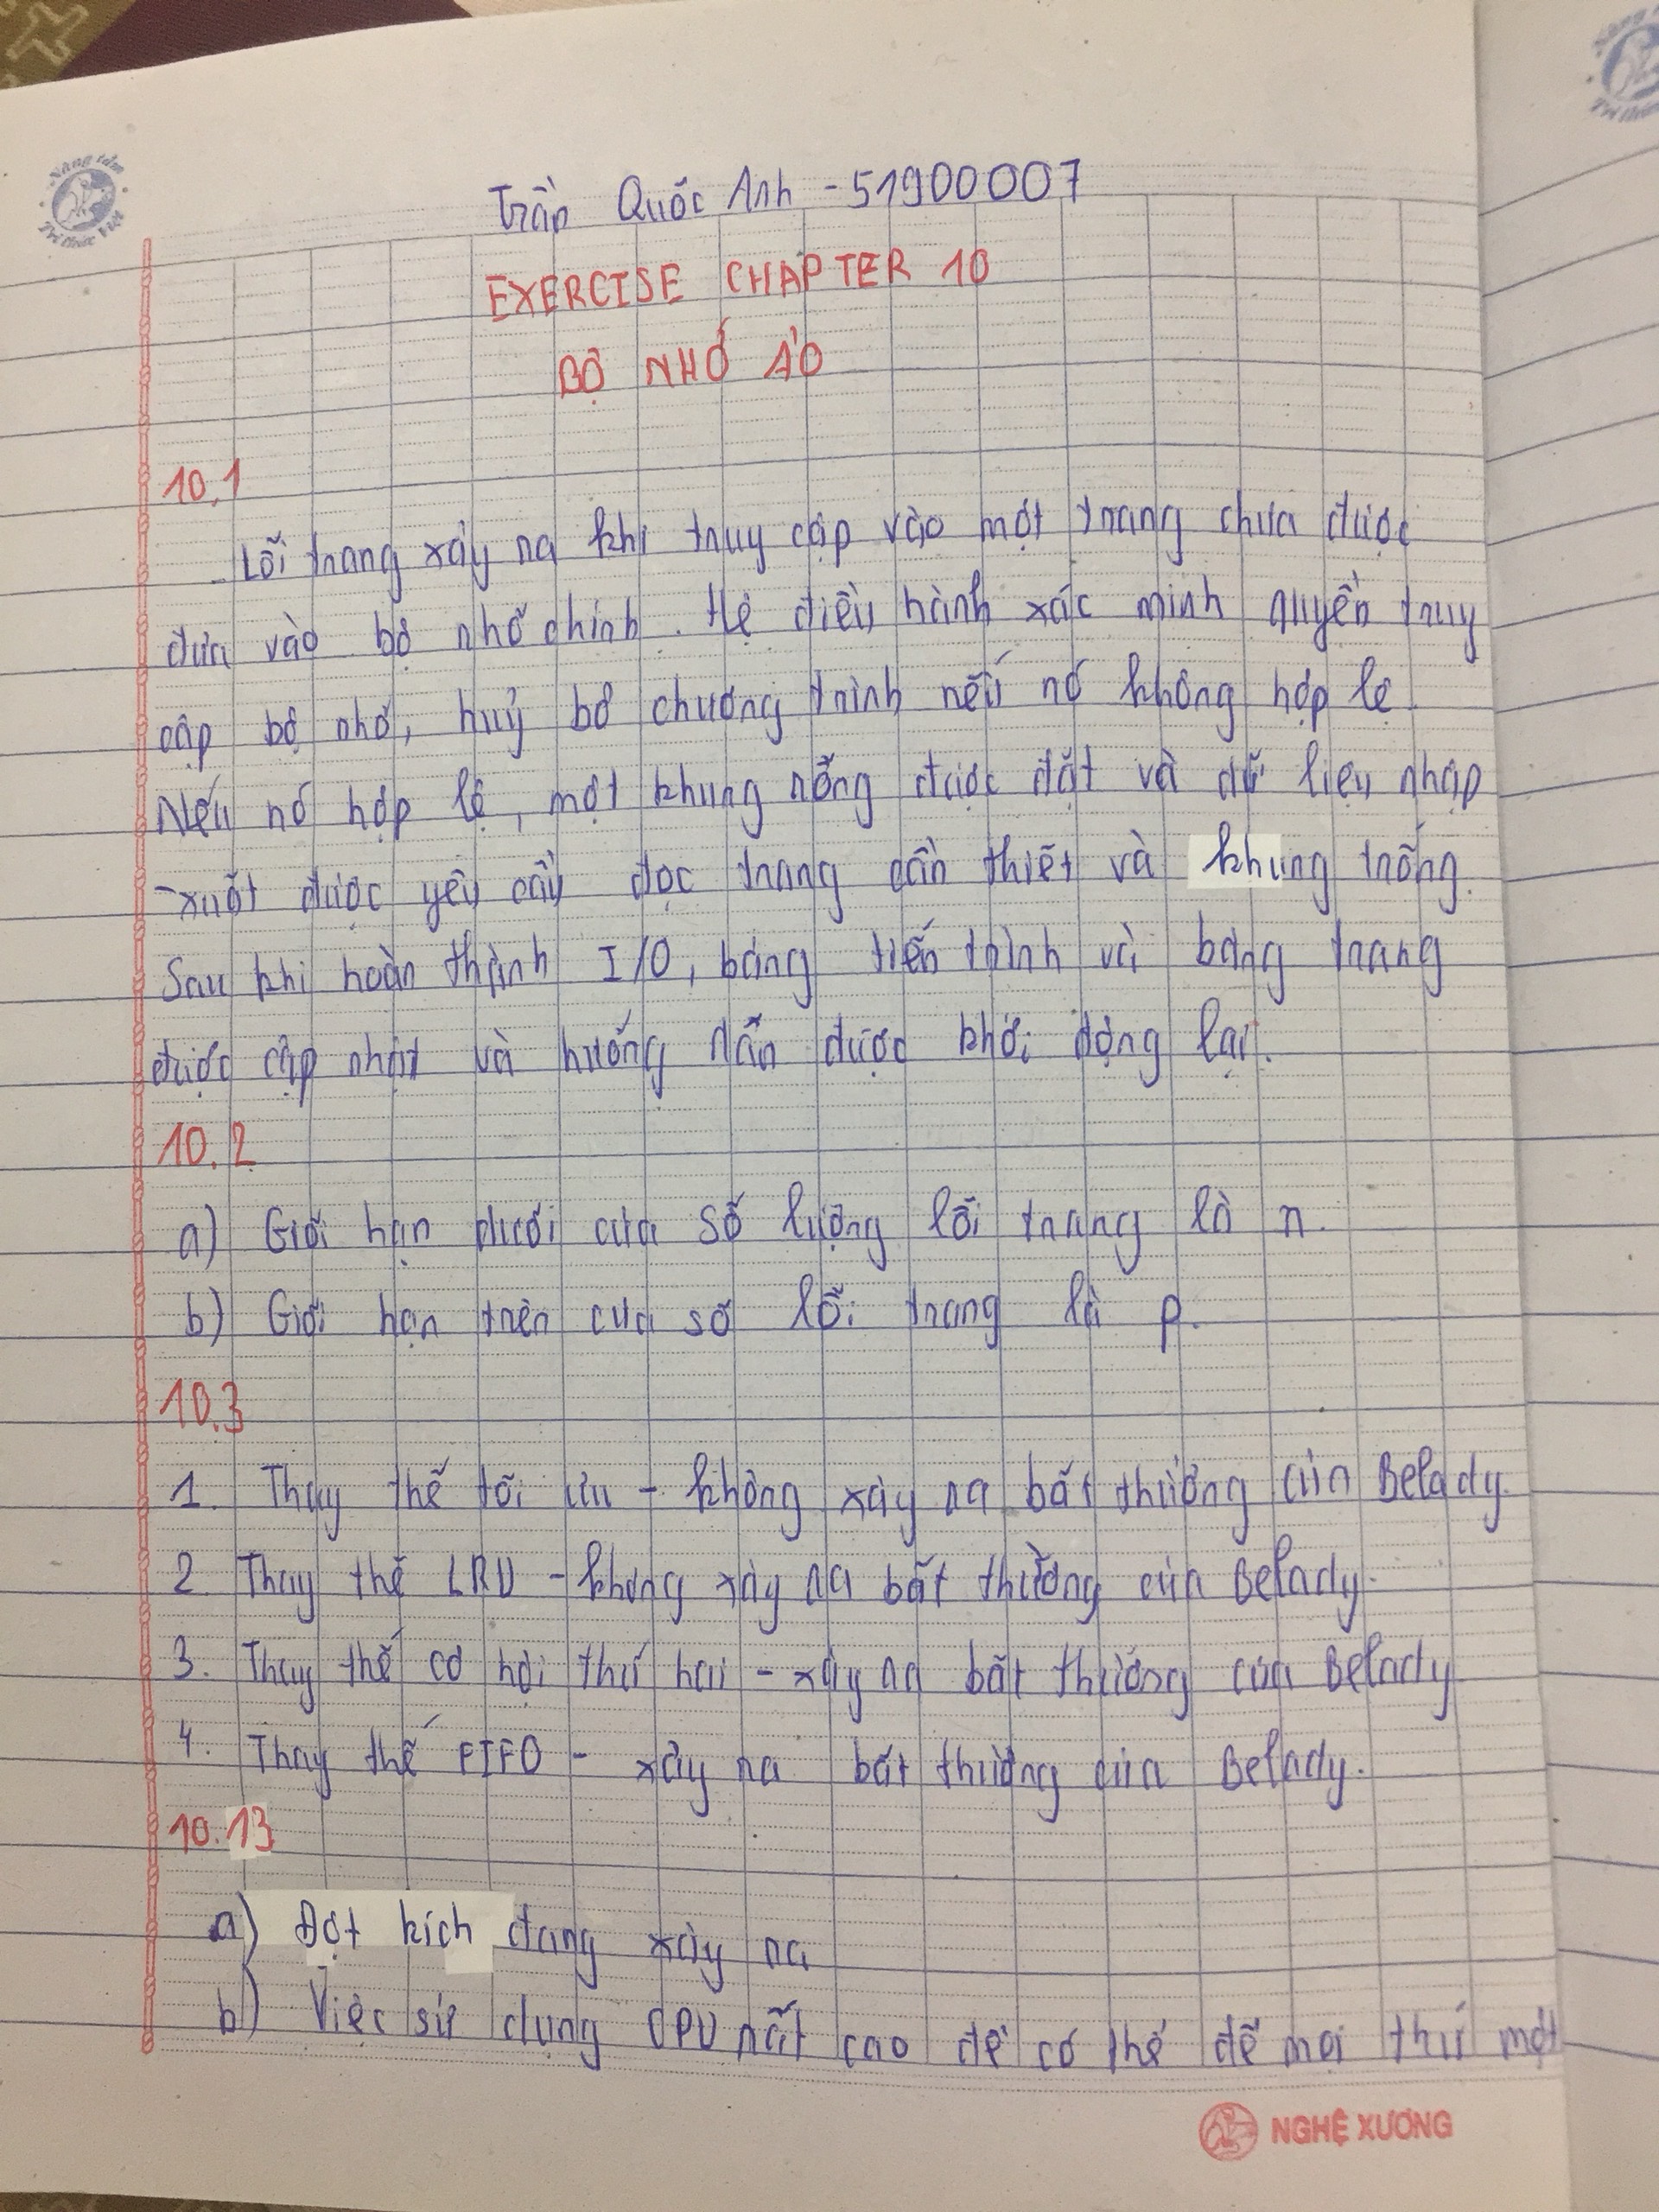 Nâng tầm
Tri thức Việt
Trần Quốc Anh - 51900007
EXERCISE CHAPTER 10
BỘ NHỚ ẢO
10.1
Lỗi trang xảy ra khi truy cập vào một trang chưa được
đưa vào bộ nhớ chính. Hệ điều hành xác minh quyền truy
cập bộ nhớ, huỷ bỏ chương trình nếu nó không hợp lệ
Nếu nó hợp lệ, một khung rỗng được đặt và dữ liệu nhập
-xuất được yêu cầu đọc trang cần thiết và khung trống.
Sau khi hoàn thành I/O, bảng tiến trình và bảng trang
được cập nhật và hướng dẫn được khởi động lại.
10.2
a) Giới hạn dưới của số lượng lỗi trang là n.
b) Giới hạn trên của số lỗi trang là p.
10.3
1. Thay thế tối ưu - không xảy ra bất thường của Belady.
2. Thay thế LRU - không xảy ra bất thường của Belady.
3. Thay thế cơ hội thứ hai - xảy ra bất thường của Belady
4. Thay thế FIFO - xảy ra bất thường của Belady.
10.13
a) Đột kích đang xảy ra
b) Việc sử dụng CPU rất cao để có thể để mọi thứ một
NGHỆ XƯƠNG